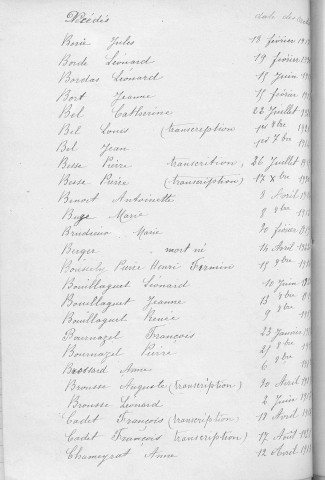 Décédés date des
Jules 13 février
Borde Léonard 19 février
Bordas Léonard 15 Juin
Bort Jeanne 15 février
Bel Catherine 22 Juillet
Bel Louis (transcription 1er 8bre
Bel Jean 1er 7bre
Besse Pierre transcription) 26 Juillet
Besse Pierre (transcription) 17 Xbre
Benoit Antoinette 8 Avril
Buge Marie 8 8bre
Marie 20 février
Berger mort né 14 Avril
Pierre Henri Firmin 15 9bre
Bouillaguet Léonard 10 Juin
Bouillaguet Jeanne 13 8bre
Bouillaguet Renée 9 9bre
Bournazel François 23 Janvier
Bournazel Pierre 21
Brossard Anne 6 9bre
Brousse Auguste (transcription) 30 Avril
Brousse Léonard 2 Juin
Cadet François (transcription) 18 Avril
Cadet François (transcription) 17 Août
Chameyrat Anne 12 Avril